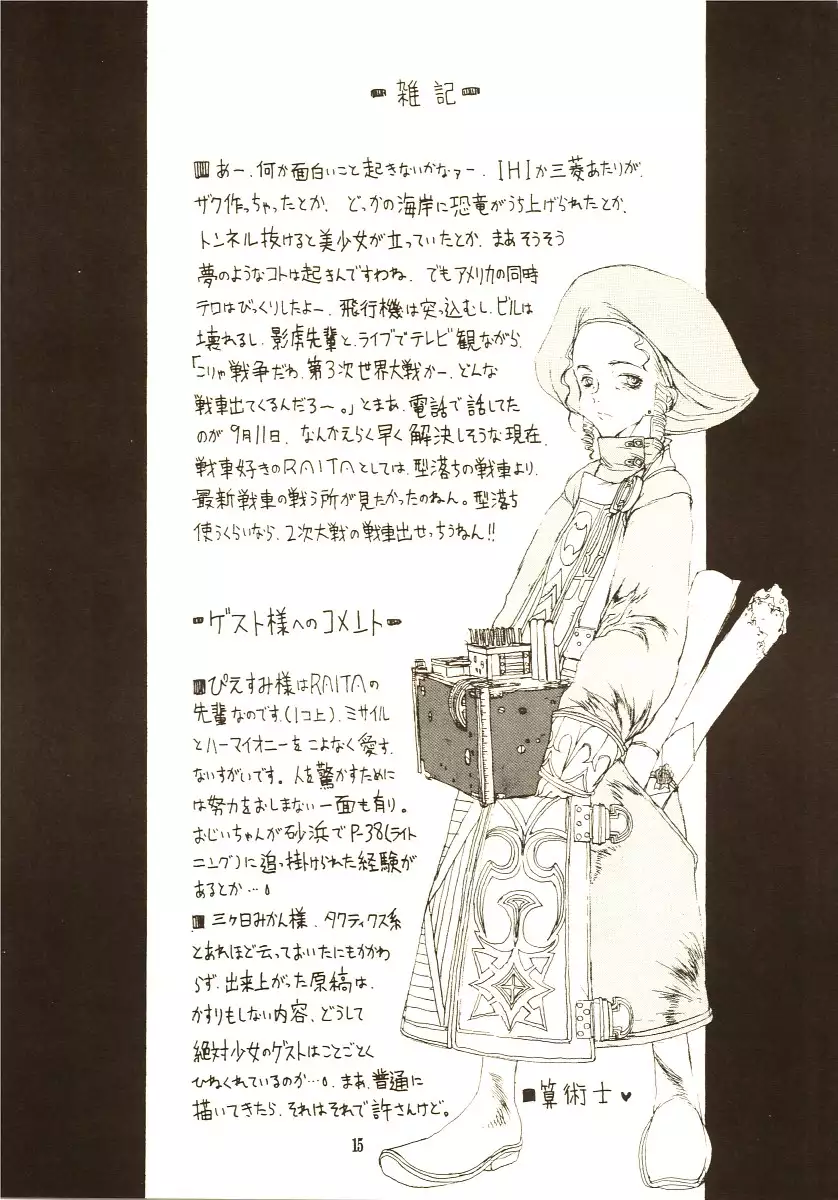 雑記
あー、何か面白いこと起きないかなァー、IHIか三菱あたりが、
ザク作っちゃったとか、どっかの海岸に恐竜がうち上げられたとか、
トンネル抜けると美少女が立っていたとか、まあそうそう
夢のようなコトは起きんですわね、でもアメリカの同時
テロはびっくりしたよー、飛行機は突っ込むし、ビルは
壊れるし、影虎先輩と、ライブでテレビ観ながら、
「こりゃ戦争だわ、第3次世界大戦かー、どんな
戦車出てくるんだろー。」とまあ、電話で話してた
のが9月11日、なんかえらく早く解決しそうな現在、
戦車好きのRAITAとしては、型落ちの戦車より、
最新戦車の戦う所が見たかったのねん。型落ち
使うくらいなら、2次大戦の戦車出せっちうねん!!
ゲスト様へのコメント
ぴえすみ様はRAITAの
先輩なのです、(1コ上)、ミサイル
とハーマイオニーをこよなく愛す、
ないすがいです。人を驚かすために
は努力をおしまない一面も有り。
おじいちゃんが砂浜でP-38(ライト
ニング)に追っ掛けられた経験が
あるとか…。
三ケ日みかん様、タクティクス系
とあれほど云っておいたにもかかわ
らず、出来上がった原稿は、
かすりもしない内容、どうして
絶対少女のゲストはことごとく
ひねくれているのか…。まあ、普通に
描いてきたら、それはそれで許さんけど。
算術士♥
15